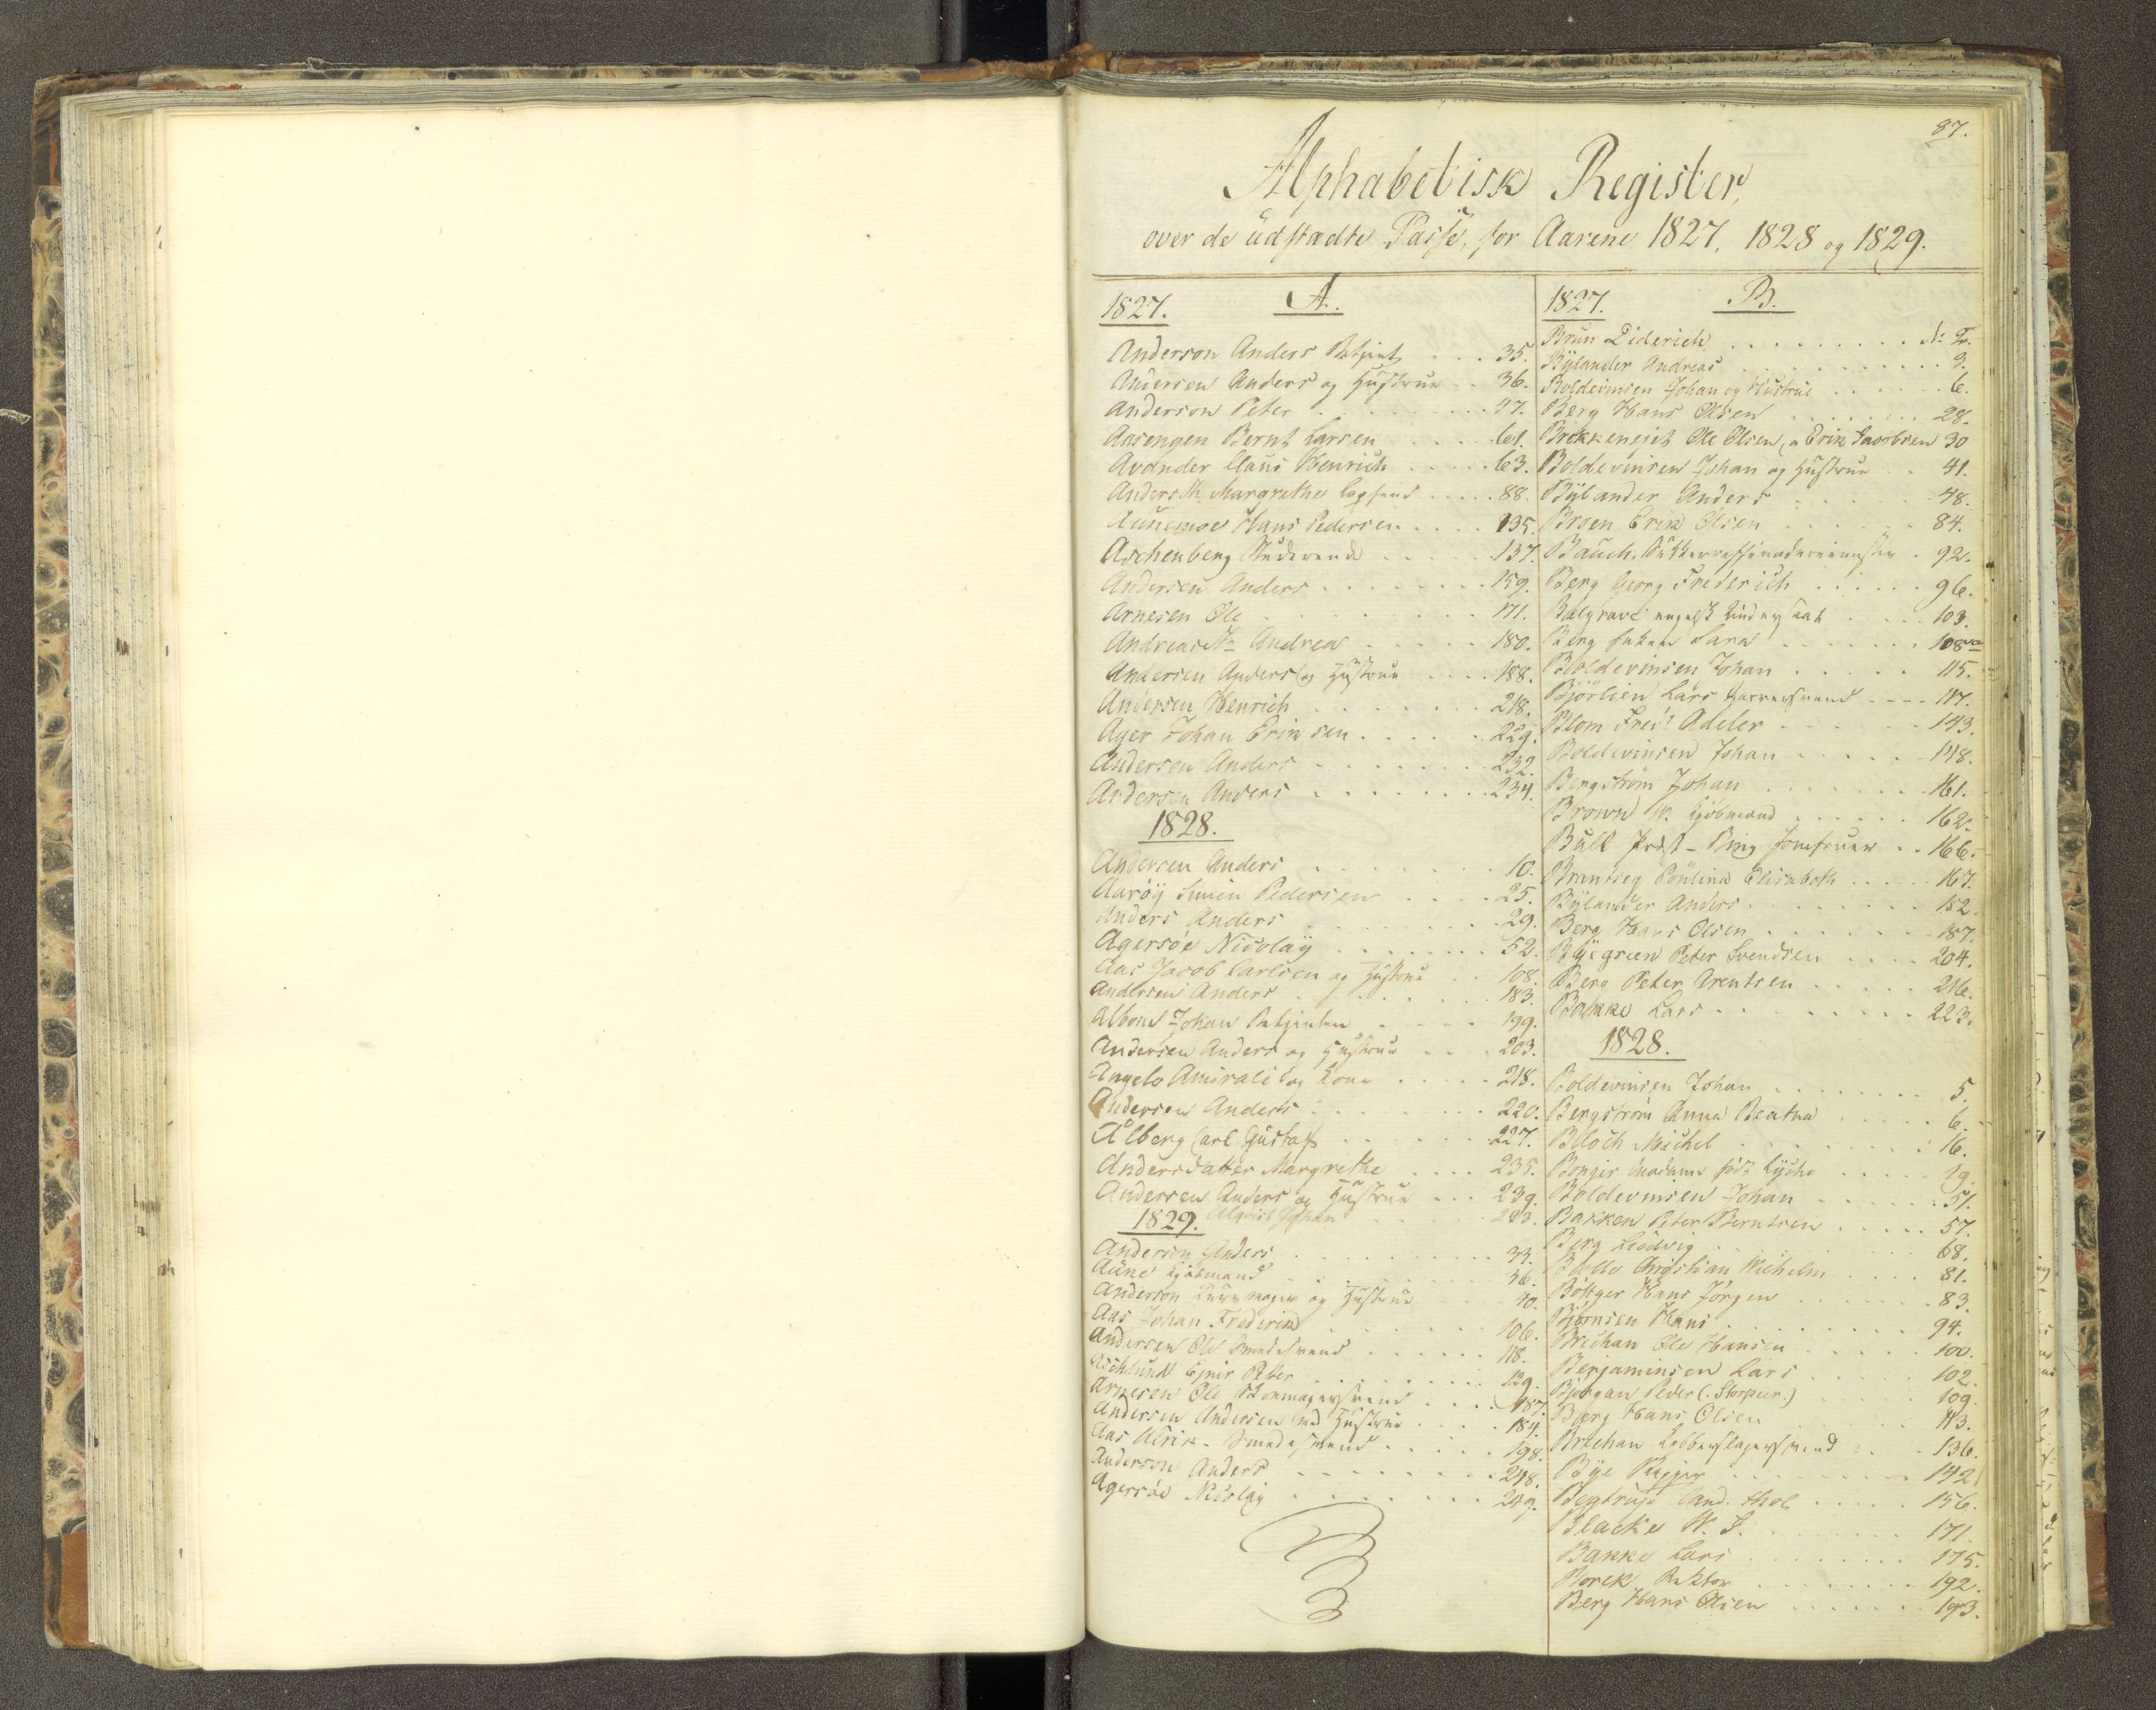 87.
Alphabetisk Register,
over de udstædte Passe, for Aarene 1827, 1828 og 1829.
1827. A.
Anderson Anders 35.
Andersen Anders og Hustrue 36.
Anderson Peter 47.
Aasengen Bernt Larsen 61.
Avander Claus Henrich 63.
Anders Margrethe 88.
Aunemoe Hans Pedersen 135.
Aschenberg Studerende 137.
Andersen Anders 159.
Arnesen Ole 171.
Andreas Andrea 180.
Andersen Anders og Hustrue 188.
Andersen Henrich 218.
Ager Johan Erik sen 229.
Andersen Anders 232.
Andersen Anders 234.
1828.
Andersen Anders 10.
Aarøy Simen Pedersen 25.
Anders Anders 29.
Agersøe Nicolay 52.
Aas Jacob Carlsen og Hustrue 108.
Andersen Anders 183.
Albom Johan 199.
Andersen Anders og Hustrue 203.
Angelo Amirali og Kone 218.
Andersen Anders 220.
Ålberg Carl Gustaf 227.
Andersdatter Margrethe 235.
Andersen Anders og Hustrue 239.
1829. Alqvist Johan 243.
Anderson Anders 33.
Aune Kjøbmand 36.
Anderson og Hustrue 40.
Aas Johan Frederik 106.
Andersen Ole Smedesvend 118.
Aschlund Peter 129.
Arnesen Ole 187.
Andersen Andersen med Hustrue 184.
Aas Ulrik Smedesvend 198.
Anderson Anders 248.
Agersøe Nicolay 249.
1827. B.
Brun Diderich No 2.
Bylander Andreas 3.
Boldevinsen Johan og Hustrue 6.
Berg Hans Olsen 28.
Brekkeneset Ole Olsen og Erik Jacobsen 30
Boldevinsen Johan og Hustrue 41.
Bylander Anders 48.
Broen Erik Olsen 84.
Bauch 92.
Berg Georg Frederich 96.
Balgrave engelsk 103.
Berg Sara 108
Boldevinsen Johan 115.
Bjørlien Lars 117.
Blom Fred: Adeler 143.
Boldevinsen Johan 148.
Bergstrøm Johan 161.
Brown W. Kjøbmand 162.
Bull Jomfruer 166.
Brantseg Paulina Elisabeth 167.
Bylander Anders 182.
Berg Hans Olsen 187.
Byegreen Peter Svendsen 204.
Berg Peter Arentsen 216.
Bakke Lars 223.
1828.
Boldevinsen Johan 5.
Bergstrøm Anna Beatha 6.
Bloch Michel 16.
Madame født Lyche 19.
Boldevinsen Johan 51.
Bakken Peter Berntsen 57.
Berg Ludvig 68.
Christian Wilhelm 81.
Bøttger Hans Jørgen 83.
Bjørnsen Hans 94.
Brechan Ole Hansen 100.
Benjaminsen Lars 102.
Bjørgan Peder (Størpeer.) 109.
Berg Hans Olsen 113.
Brechan Kobberslagersvend 136.
Bye 142
Begtrup Cand. theol 156.
Blacke W. J. 171.
Bakke Lars 175.
Borck Rektor 192.
Berg Hans Olsen 193.